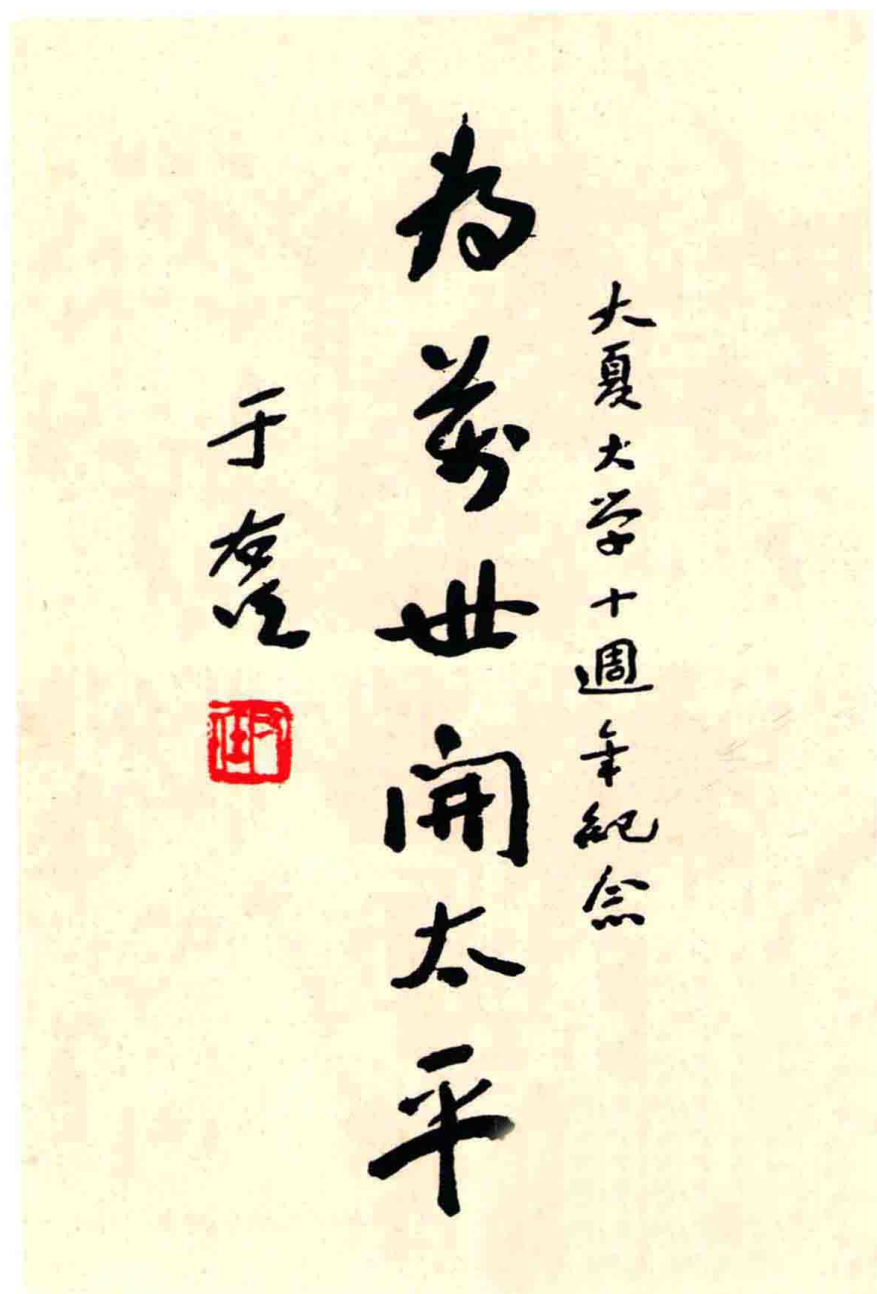 大夏大学十週年紀念
為萬世開太平
于右任